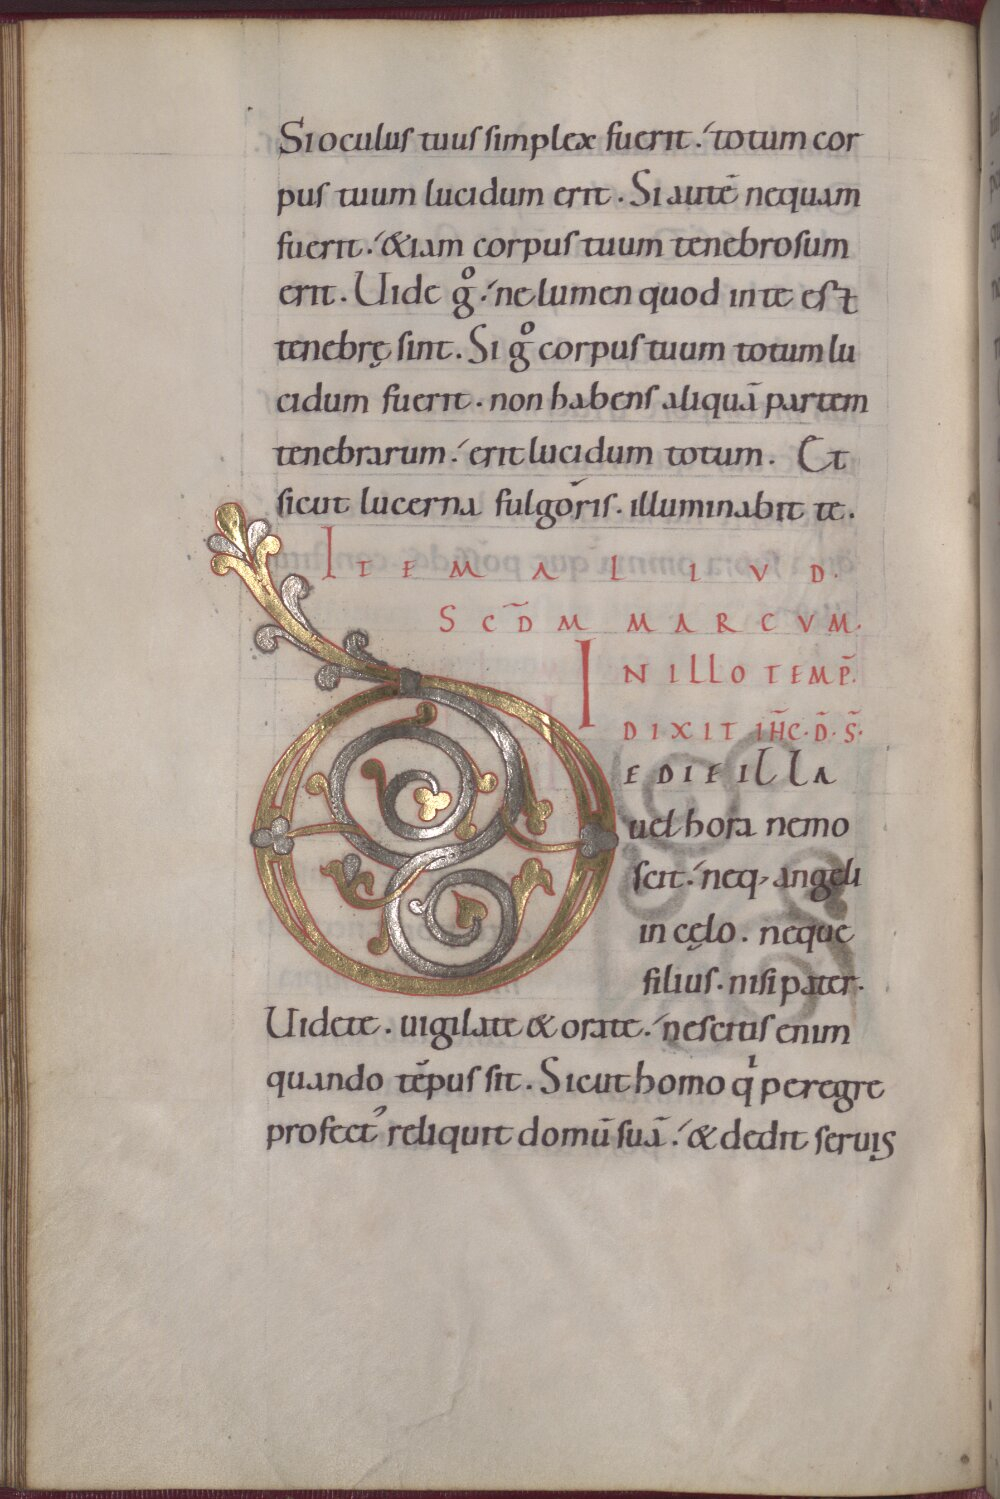 Si oculus tuus simplex fuerit. totum cor
pus tuum lucidum erit. Si autē nequam
fuerit. &iam corpus tuum tenebrosum
erit. Uide gͦ. ne lumen quod in te est
tenebrę sint. Si gͦ corpus tuum totum lu
cidum fuerit. non habens aliquā partem
tenebrarum. erit lucidum totum. Et
sicut lucerna fulgoris. illuminabit te.
ITEM ALIVD.
SCD̄M MARCVM.
IN ILLO TEMP̄.
DIXIT IH̄C. D̄. S̄.
DE DIE ILLA
uel hora nemo
scit. neq, angeli
in cęlo. neque
filius. nisi pater.
Uidete. uigilate & orate. nescitis enim
quando tēpus sit. Sicut homo qͥ peregre
profectꝰ reliquit domū suā. & dedit seruis